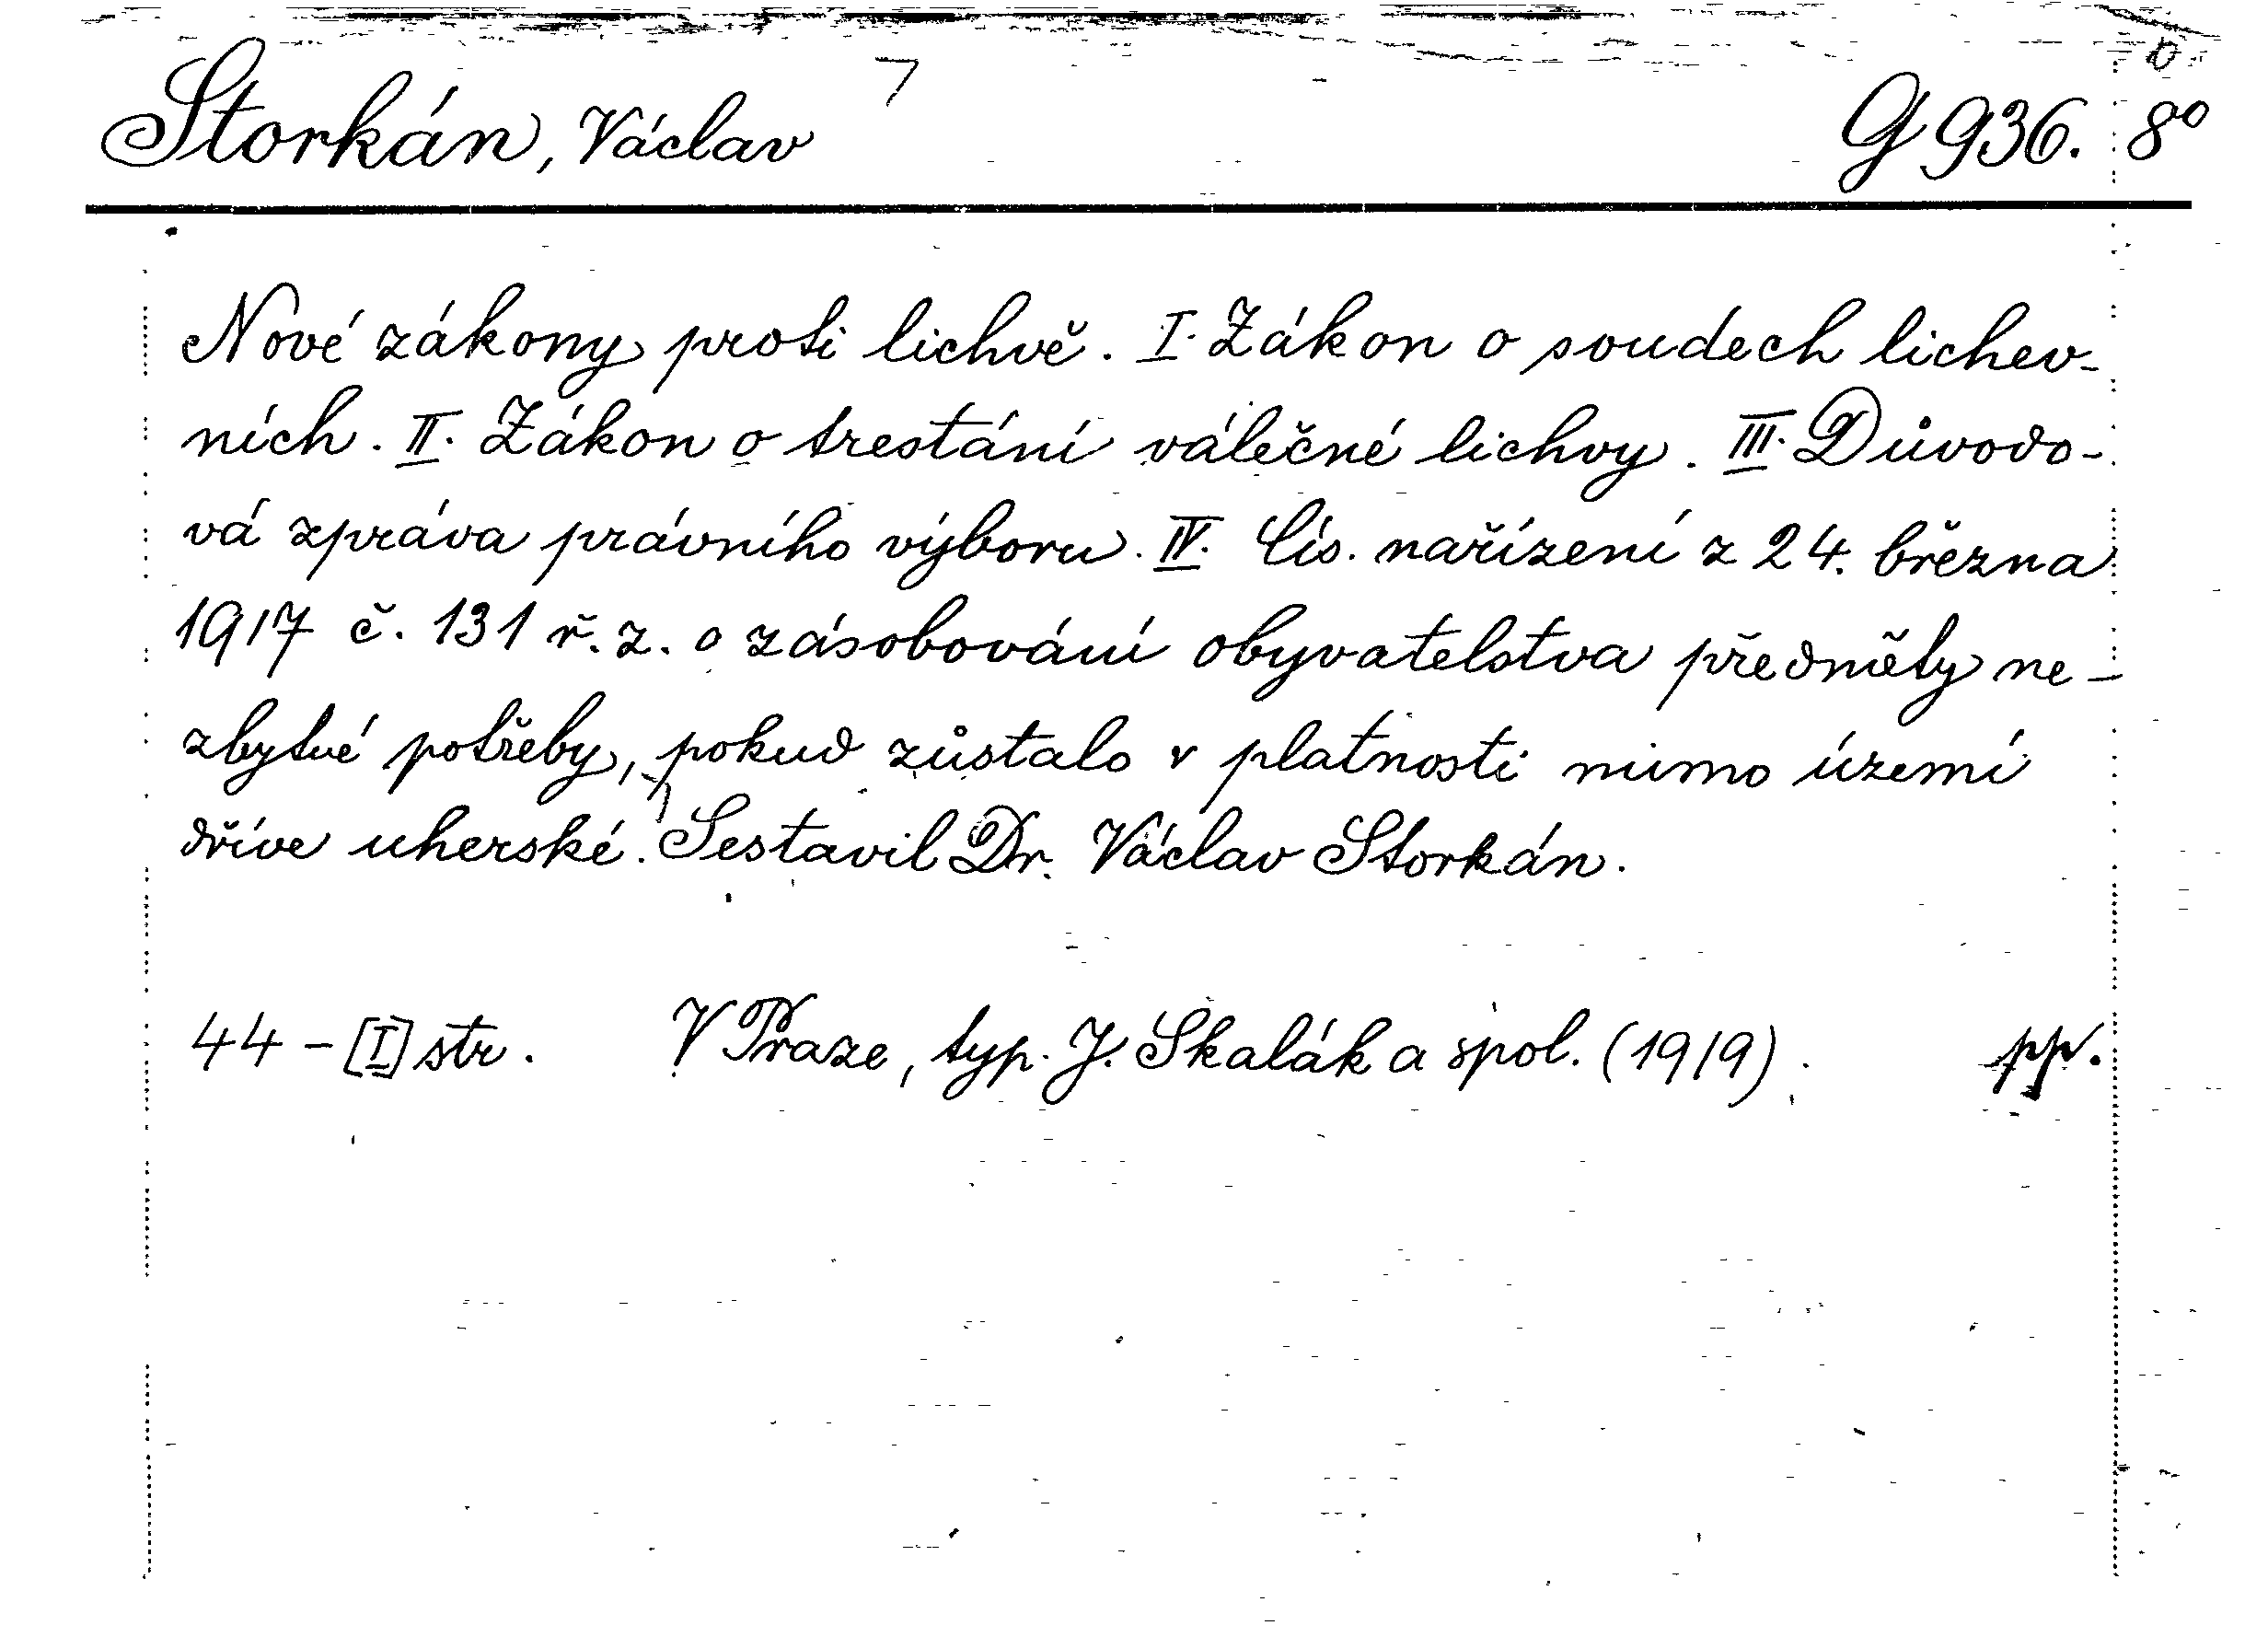 Storkán, Václav G 936. 8°
Nové zákony proti lichvě. I. Zákon o soudech lichev-
ních. II. Zákon o trestání válečné lichvy. III. Důvodo-
vá zpráva právního výboru. IV. Cís. nařízení z 24. března
1917 č. 131 ř. z. o zásobování obyvatelstva předměty ne-
zbytné potřeby, pokud zůstalo v platnosti mimo území
dříve uherské. Sestavil Dr. Václav Storkán.
44 - [I] str. V Praze, typ. J. Skalák a spol. (1919). pp.